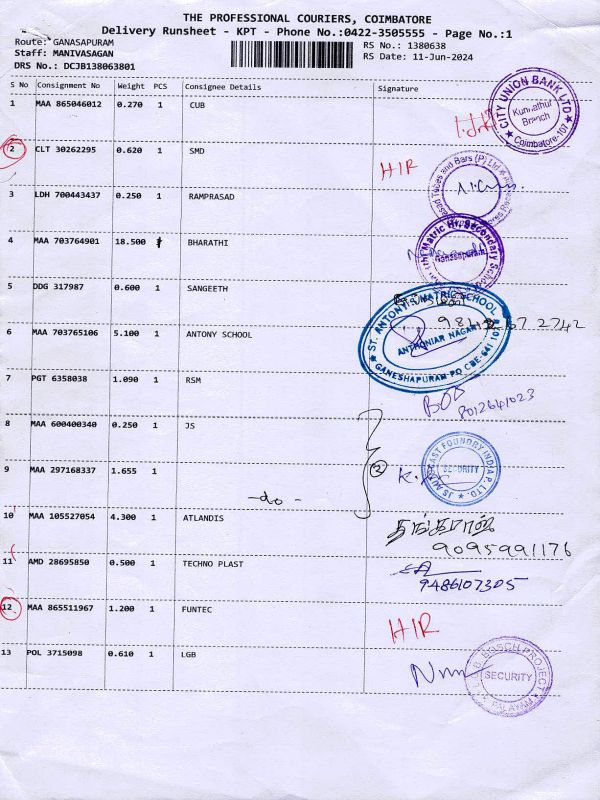 THE PROFESSIONAL COURIERS, COIMBATORE
Delivery Runsheet - KPT - Phone No.:0422-3505555 - Page No.:1
Route: GANASAPURAM
RS No.: 1380638
Staff: MANIVASAGAN
RS Date: 11-Jun-2024
DRS No.: DCJB138063801
S No Consignment No Weight PCS Consignee Details Signature
1 MAA 865046012 0.270 1 CUB
CITY UNION BANK LTD
Kunnathur
Branch
Coimbatore-107
2 CLT 30262295 0.620 1 SMD HIR
Tubes and Bars (P) Ltd
3 LDH 700443437 0.250 1 RAMPRASAD
4 MAA 703764901 18.500 1 BHARATHI
Matric Hr. Secondary School
Ganesapuram
5 DDG 317987 0.600 1 SANGEETH
6 MAA 703765106 5.100 1 ANTONY SCHOOL
ST. ANTONY'S MATRIC SCHOOL
ANTHONIAR NAGAR
GANESHAPURAM PO CBE 641 107
7 PGT 6358038 1.090 1 RSM
8012641023
8 MAA 600400340 0.250 1 JS
9 MAA 297168337 1.655 1
-do-
2
SECURITY
10 MAA 105527054 4.300 1 ATLANDIS
9095991176
11 AMD 28695850 0.500 1 TECHNO PLAST
9486107305
12 MAA 865511967 1.200 1 FUNTEC HIR
13 POL 3715098 0.610 1 LGB
SECURITY